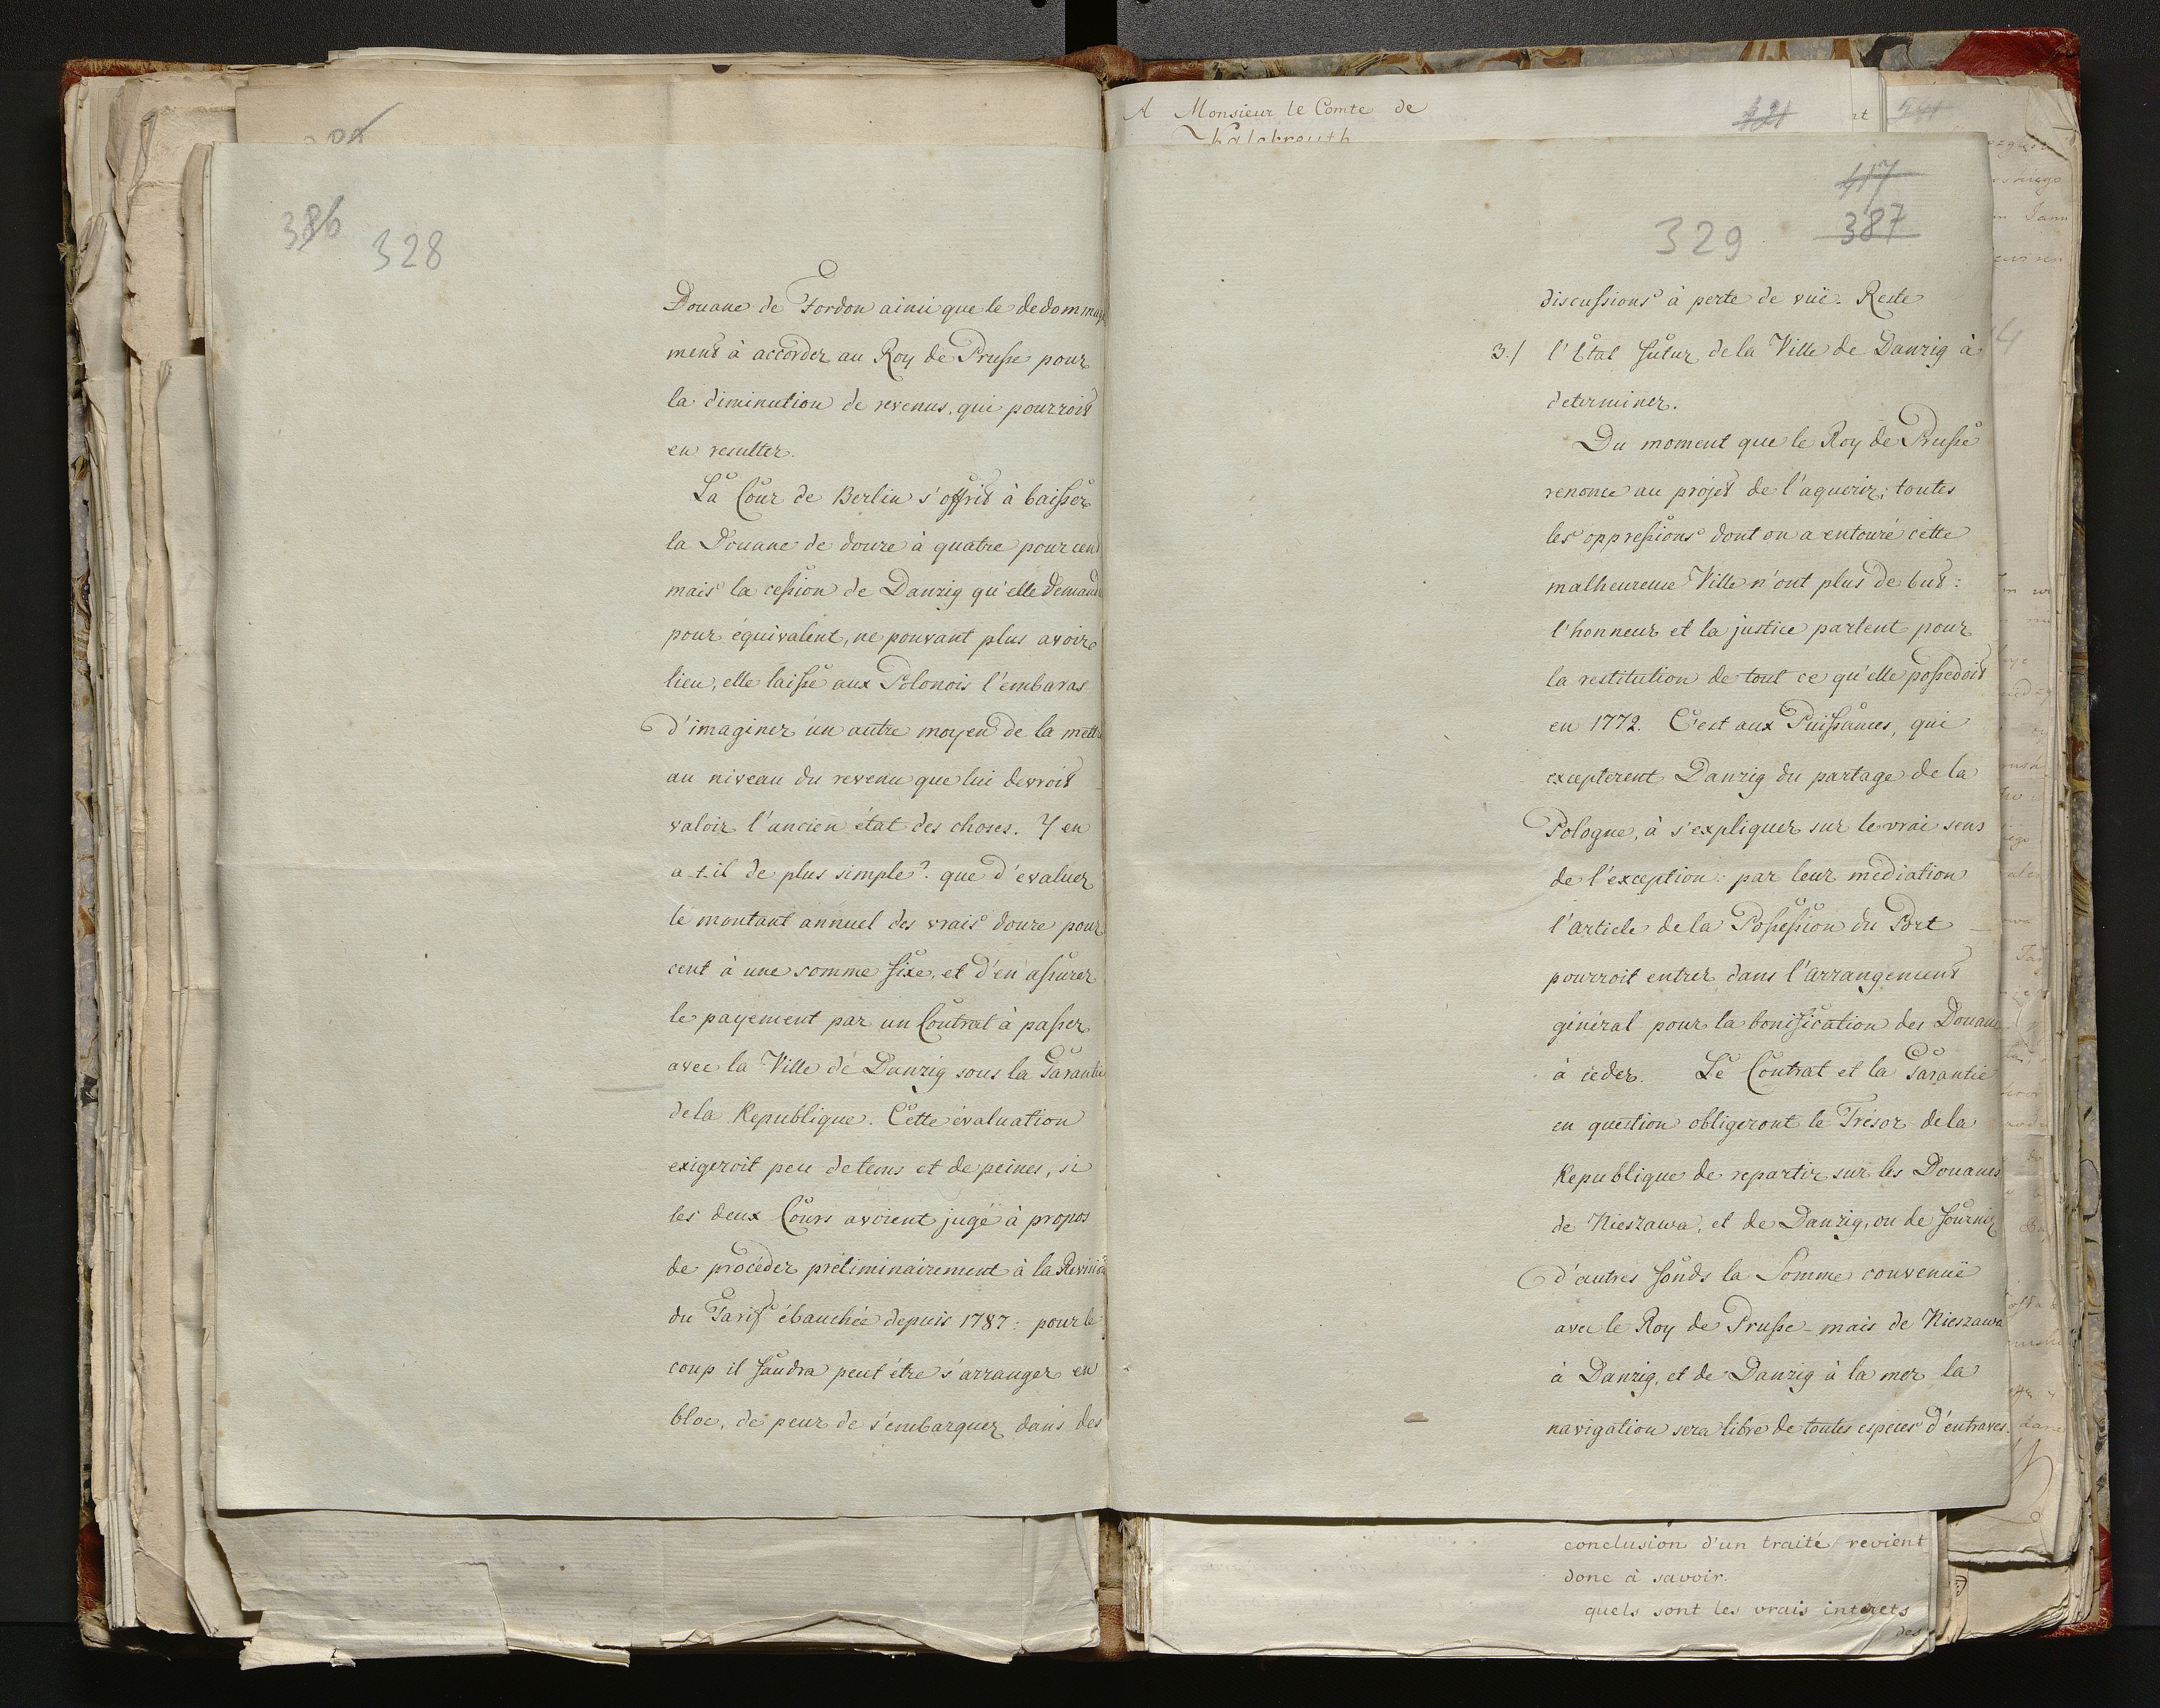 386
328
Douane de Fordon ainsi que le dedommage
ment à accorder au Roy de Prusse pour
la diminution de revenus, qui pourroit
en resulter.
La Cour de Berlin s'offrit à baisser
la Douane de douze à quatre pour cent
mais la cession de Danzig qu'elle demande
pour équivalent, ne pouvant plus avoir
lieu, elle laisse aux Polonois l'embaras
d'imaginer un autre moyen de la mettre
au niveau du revenu que lui devroit
valoir l'ancien état des choses. Y en
a-t-il de plus simple? que d'evaluer
le montant annuel des vrais douze pour
cent à une somme fixe, et d'en assurer
le payement par un Contrat à passer
avec la Ville de Danzig sous la Garantie
de la Republique. Cette évaluation
exigeroit peu de tems et de peines, si
les deux Cours avoient jugé à propos
de procéder préliminairement à la Revision
du Tarif ébauchée depuis 1787: pour le
coup il faudra peut être s'arranger en
bloc, de peur de s'embarquer dans des
A Monsieur le Comte de
Kalckreuth
421
417
329
387
discussions à perte de vuë. Reste
3./ l'Etat futur de la Ville de Danzig à
determiner.
Du moment que le Roy de Prusse
renonce au projet de l'aquerir; toutes
les oppressions dont on a entouré cette
malheureuse Ville n'ont plus de but:
l'honneur et la justice parlent pour
la restitution de tout ce qu'elle possedoit
en 1772. C'est aux Puissances, qui
excepterent Danzig du partage de la
Pologne, à s'expliquer sur le vrai sens
de l'exception: par leur mediation
l'article de la Possession du Port
pourroit entrer dans l'arrangement
général pour la bonification des Douanes
à ceder. Le Contrat et la Garantie
en question obligeront le Trésor de la
Republique de repartir sur les Douanes
de Nieszawa, et de Danzig, ou de fournir
d'autres fonds la Somme convenuë
avec le Roy de Prusse - mais de Nieszawa
à Danzig, et de Danzig à la mer la
navigation sera libre de toutes especes d'entraves.
conclusion d'un traité revient
donc à savoir.
quels sont les vrais interets
des